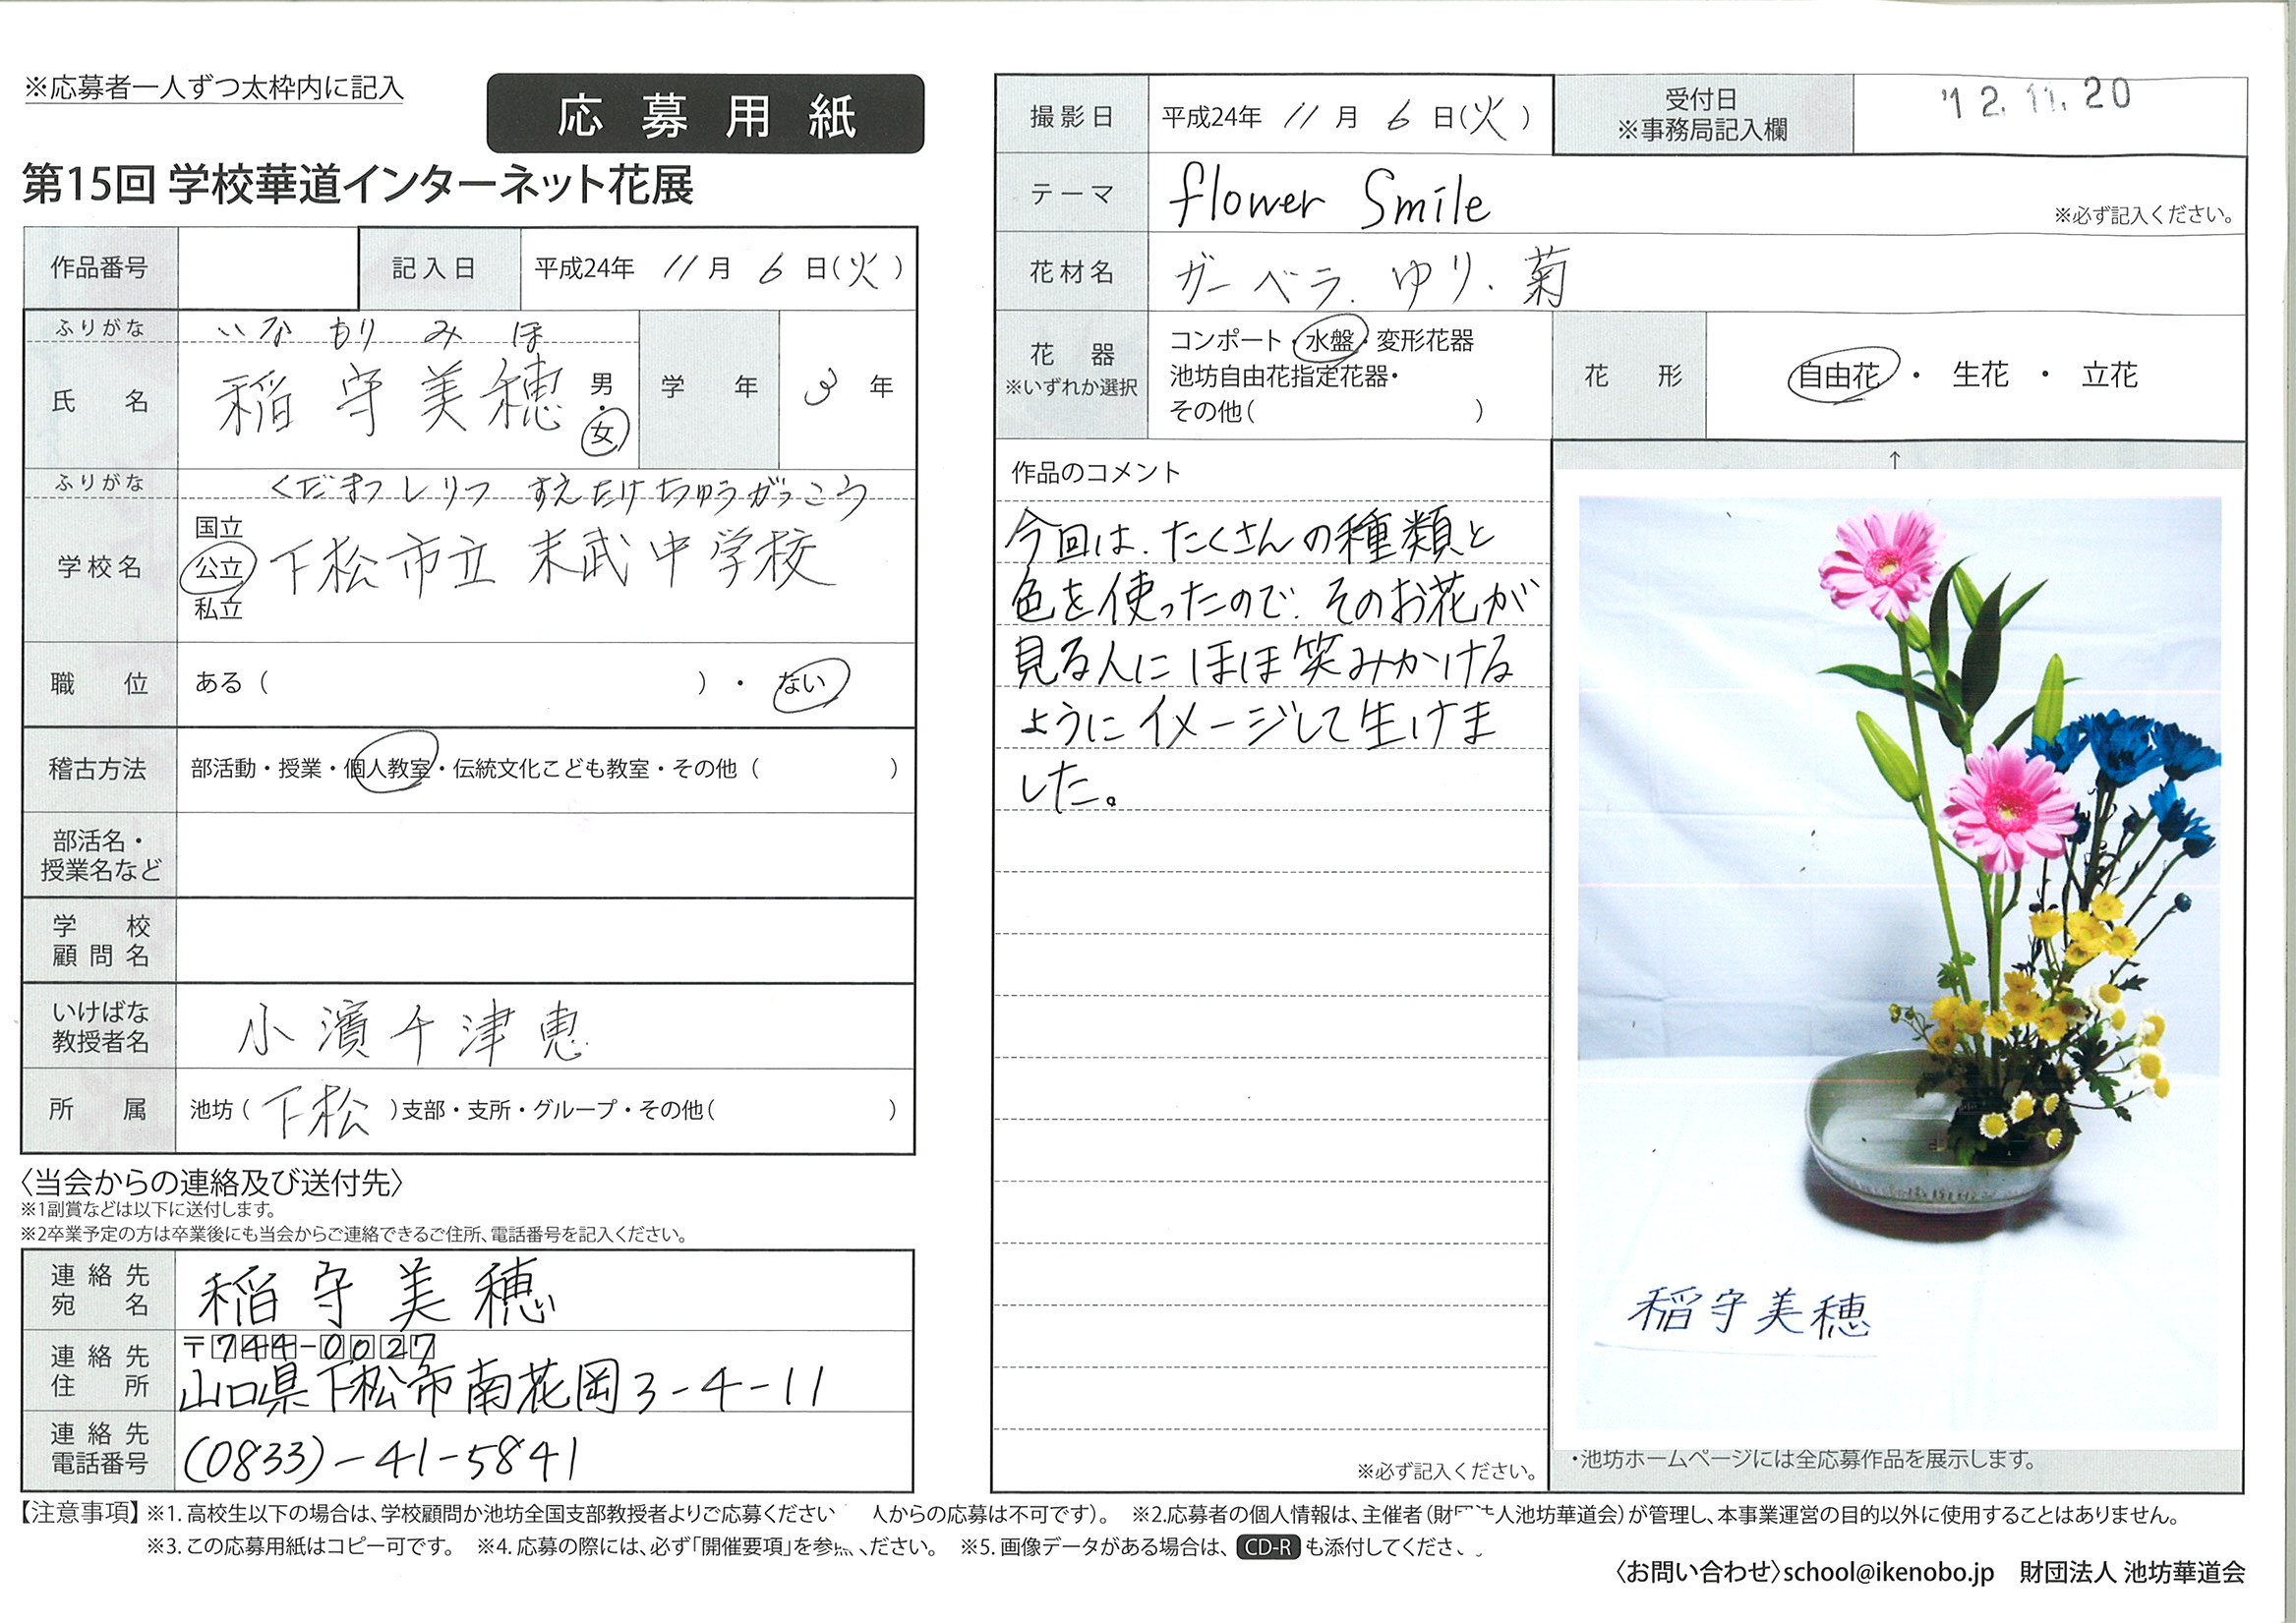 ※応募者一人ずつ太枠内に記入
応募用紙
第15回 学校華道インターネット花展
作品番号
記入日 平成24年 11月 6日(火)
ふりがな いなもり みほ
氏名 稲守美穂 男・女
学年 3年
ふりがな くだまつしりつ すえたけちゅうがっこう
学校名 国立 公立 私立 下松市立 末武中学校
職位 ある( )・ない
稽古方法 部活動・授業・個人教室・伝統文化こども教室・その他( )
部活名・
授業名など
学校
顧問名
いけばな
教授者名 小濱千津恵
所属 池坊(下松)支部・支所・グループ・その他( )
〈当会からの連絡及び送付先〉
※1副賞などは以下に送付します。
※2卒業予定の方は卒業後にも当会からご連絡できるご住所、電話番号を記入ください。
連絡先
宛名 稲守美穂
連絡先
住所 〒744-0027
山口県下松市南花岡3-4-11
連絡先
電話番号 (0833)-41-5841
撮影日 平成24年 11月 6日(火)
受付日
※事務局記入欄 '12.11.20
テーマ flower Smile ※必ず記入ください。
花材名 ガーベラ.ゆり.菊
花器
※いずれか選択
コンポート・水盤・変形花器
池坊自由花指定花器・
その他( )
花形 自由花・生花・立花
作品のコメント
今回は.たくさんの種類と
色を使ったので.そのお花が
見る人にほほ笑みかける
ようにイメージして生けま
した。
※必ず記入ください。
↑
稲守美穂
・池坊ホームページには全応募作品を展示します。
【注意事項】※1.高校生以下の場合は、学校顧問か池坊全国支部教授者よりご応募ください 人からの応募は不可です)。 ※2.応募者の個人情報は、主催者(財団法人池坊華道会)が管理し、本事業運営の目的以外に使用することはありません。
※3.この応募用紙はコピー可です。 ※4.応募の際には、必ず「開催要項」を参 ください。 ※5.画像データがある場合は、CD-Rも添付してくださ
〈お問い合わせ〉school@ikenobo.jp 財団法人 池坊華道会